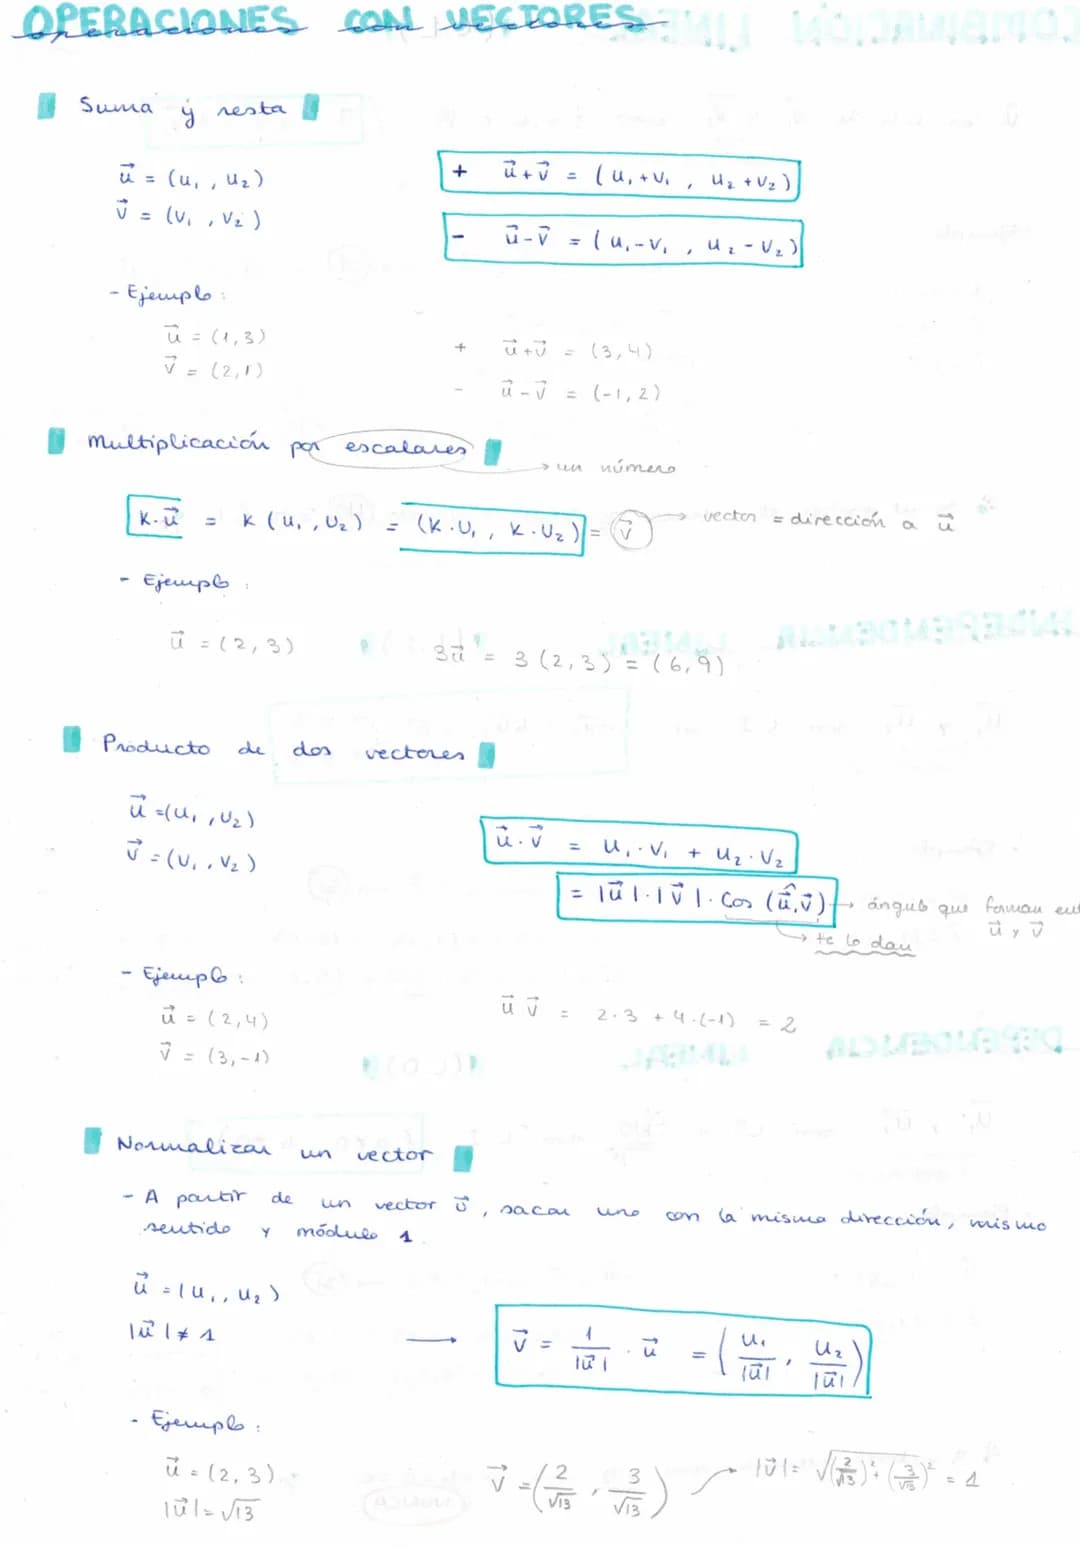 OPERACIONES CON VECTORES
operaciones con vectores
Suma y resta
u⃗ = (u₁, u₂)
v⃗ = (v₁, v₂)
+ u⃗+v⃗ = (u₁+v₁, u₂+v₂)
- u⃗-v⃗ = (u₁-v₁, u₂-v₂)
- Ejemplo:
u⃗ = (1,3)
v⃗ = (2,1)
+ u⃗+v⃗ = (3,4)
- u⃗-v⃗ = (-1,2)
Multiplicación por escalares → un número
K·u⃗ = K(u₁, u₂) = (K·u₁, K·u₂) = v⃗ → vector = dirección a u⃗
- Ejemplo:
u⃗ = (2,3)
3u⃗ = 3(2,3) = (6,9)
Producto de dos vectores
u⃗ = (u₁, u₂)
v⃗ = (v₁, v₂)
u⃗·v⃗ = u₁·v₁ + u₂·v₂
= |u⃗|·|v⃗|·cos(u⃗,v⃗) → ángulo que forman ent
u⃗ y v⃗
→ te lo dan
- Ejemplo:
u⃗ = (2,4)
v⃗ = (3,-1)
u⃗ v⃗ = 2·3 + 4·(-1) = 2
Normalizar un vector
- A partir de un vector v⃗, sacar uno con la misma dirección, mismo
sentido y módulo 1.
u⃗ = (u₁, u₂)
|u⃗| ≠ 1 → v⃗ = 1/|u⃗| · u⃗ = (u₁/|u⃗|, u₂/|u⃗|)
- Ejemplo:
u⃗ = (2,3)
|u⃗| = √13
v⃗ = (2/√13, 3/√13) → |v⃗| = √((2/√13)² + (3/√13)²) = 1